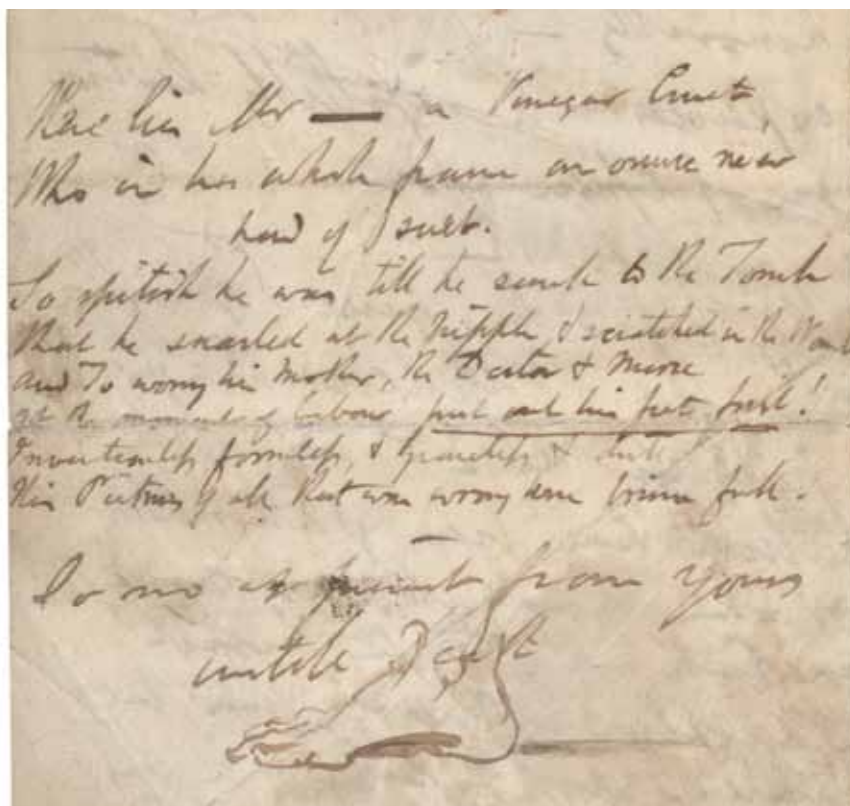 Here lies Mr — a Vinegar Cruet,
Who in his whole frame an ounce ne'er
had of suet.
So spitish he was, till he sunk to the Tomb
That he snarled at the Nipple, & scratched in the Womb
And To worry his Mother, the Doctor & Nurse
at the moment of labour put out his feet first!
Inventionless formless, & graceless &
His Pictures of all that was worry were brim full.
So no at present from Yours
until